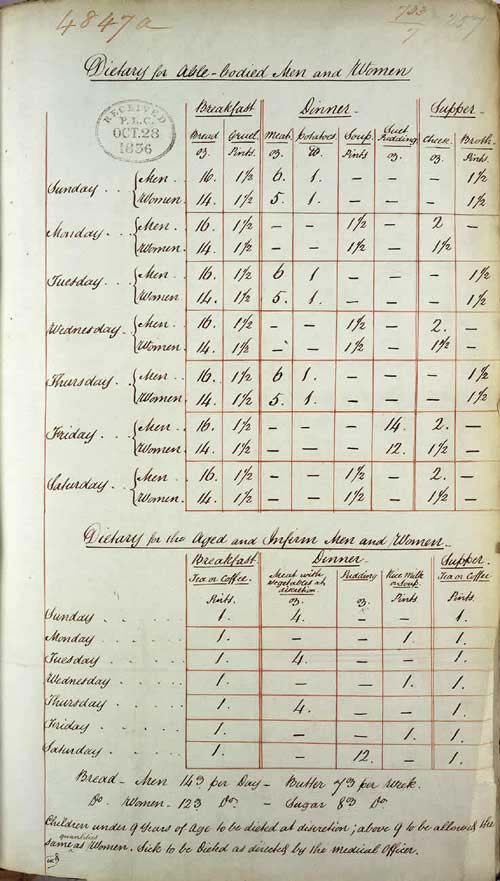 4847a
733
7
257
Dietary for Able-bodied Men and Women
RECEIVED
P.L.C.
OCT. 28
1836
Breakfast Dinner Supper
Bread Gruel Meat Potatoes Soup Suet Pudding Cheese Broth
oz. Pints oz. lb. Pints oz. oz. Pints
Sunday . . { Men . . 16. 1½ 6. 1. — — — 1½
Women 14. 1½ 5. 1. — — — 1½
Monday . . { Men . . 16. 1½ — — 1½ — 2 —
Women 14. 1½ — — 1½ — 1½
Tuesday . . { Men . . 16. 1½ 6 1 — — — 1½
Women 14. 1½ 5. 1. — — — 1½
Wednesday . { Men . . 16. 1½ — — 1½ — 2. —
Women 14. 1½ — — 1½ — 1½ —
Thursday . . { Men . . 16. 1½ 6 1. — — — 1½
Women 14. 1½ 5. 1. — — — 1½
Friday . . . { Men . . 16. 1½ — — — 14. 2. —
Women 14. 1½ — — — 12. 1½ —
Saturday . . { Men . . 16. 1½ — — 1½ — 2. —
Women 14. 1½ — — 1½ — 1½ —
Dietary for the Aged and Infirm Men and Women
Breakfast Dinner Supper
Tea or Coffee Meat with vegetables at discretion Pudding Rice Milk or Soup Tea or Coffee
Pints. oz. oz. Pints Pints.
Sunday . . . . . 1. 4. — — 1.
Monday . . . . . 1. — — 1. 1.
Tuesday . . . . . 1. 4. — — 1.
Wednesday . . . . 1. — — 1. 1.
Thursday . . . . . 1. 4. — — 1.
Friday . . . . . 1. — — 1. 1.
Saturday . . . . . 1. — 12. — 1.
Bread — Men 14℥ per Day — Butter 7℥ per Week.
Do. Women — 12℥ Do. — Sugar 8℥ Do.
Children under 9 Years of Age to be dieted at discretion; above 9 to be allowed the
same quantities as Women. Sick to be Dieted as directed by the Medical Officer.